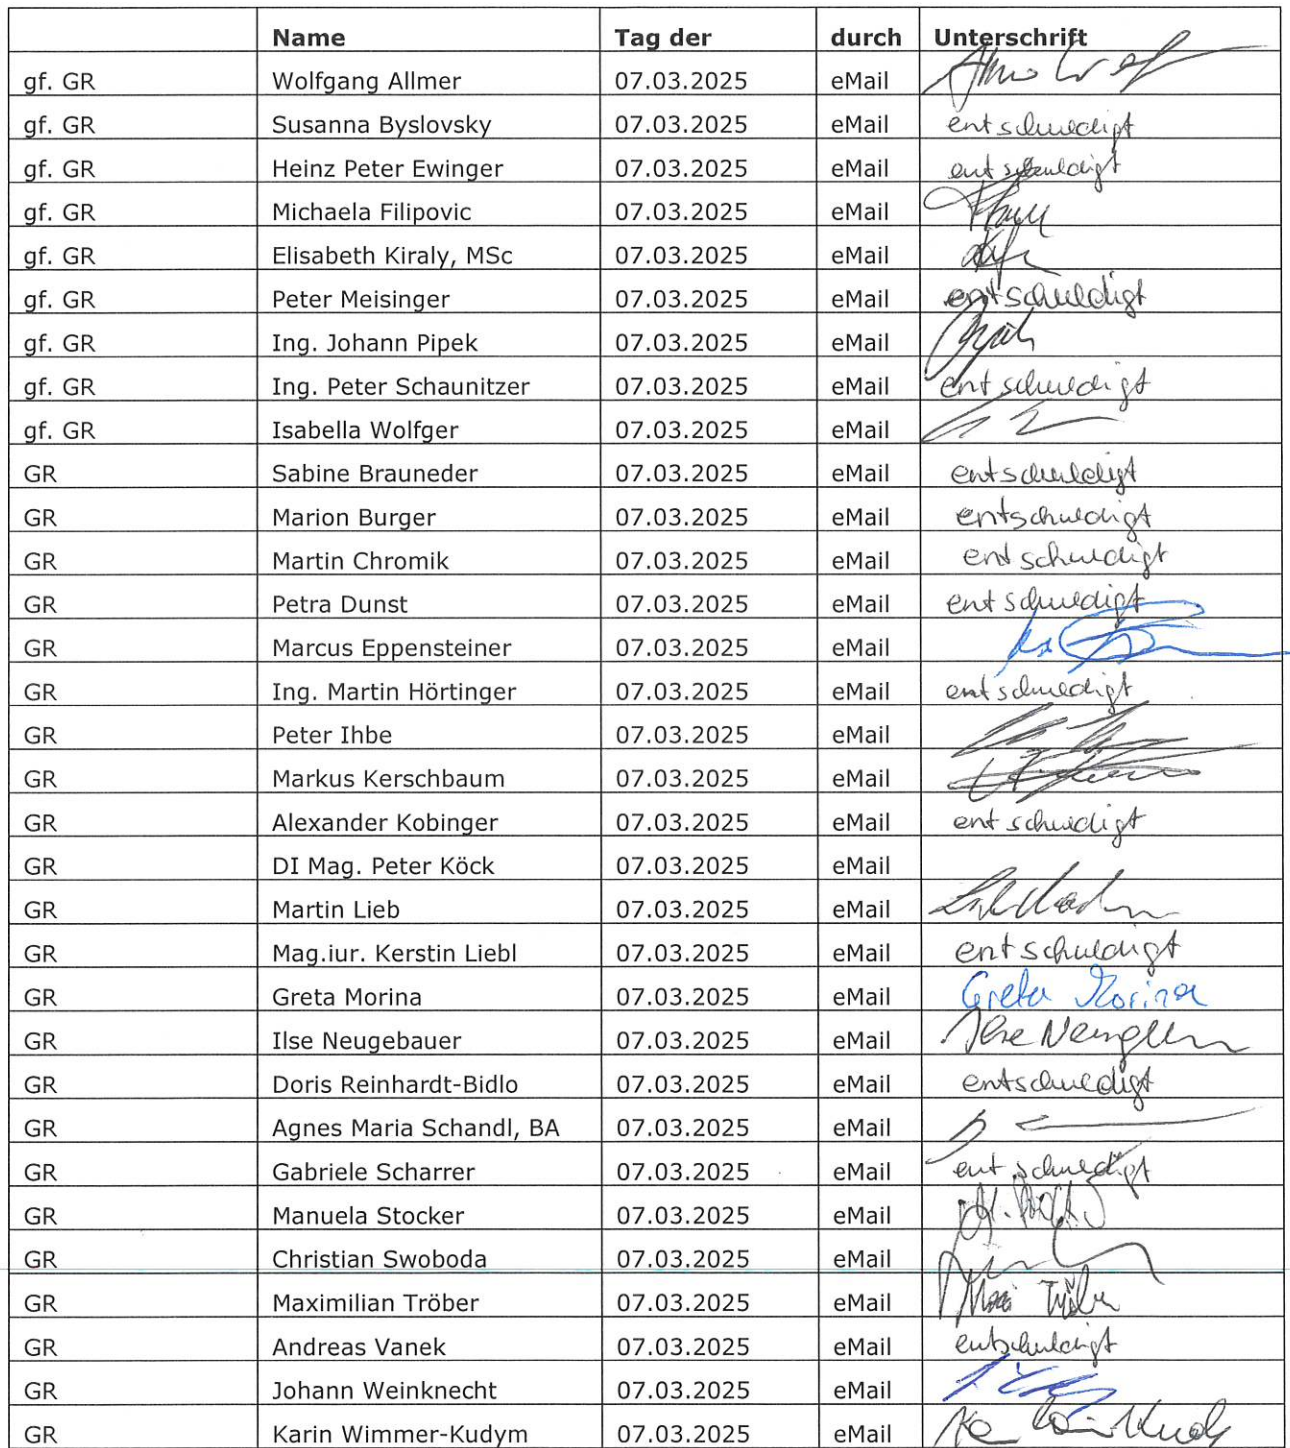 Name Tag der durch Unterschrift
gf. GR Wolfgang Allmer 07.03.2025 eMail
gf. GR Susanna Byslovsky 07.03.2025 eMail entschuldigt
gf. GR Heinz Peter Ewinger 07.03.2025 eMail entschuldigt
gf. GR Michaela Filipovic 07.03.2025 eMail
gf. GR Elisabeth Kiraly, MSc 07.03.2025 eMail
gf. GR Peter Meisinger 07.03.2025 eMail entschuldigt
gf. GR Ing. Johann Pipek 07.03.2025 eMail
gf. GR Ing. Peter Schaunitzer 07.03.2025 eMail entschuldigt
gf. GR Isabella Wolfger 07.03.2025 eMail
GR Sabine Brauneder 07.03.2025 eMail entschuldigt
GR Marion Burger 07.03.2025 eMail entschuldigt
GR Martin Chromik 07.03.2025 eMail entschuldigt
GR Petra Dunst 07.03.2025 eMail entschuldigt
GR Marcus Eppensteiner 07.03.2025 eMail
GR Ing. Martin Hörtinger 07.03.2025 eMail entschuldigt
GR Peter Ihbe 07.03.2025 eMail
GR Markus Kerschbaum 07.03.2025 eMail
GR Alexander Kobinger 07.03.2025 eMail entschuldigt
GR DI Mag. Peter Köck 07.03.2025 eMail
GR Martin Lieb 07.03.2025 eMail
GR Mag.iur. Kerstin Liebl 07.03.2025 eMail entschuldigt
GR Greta Morina 07.03.2025 eMail Greta Morina
GR Ilse Neugebauer 07.03.2025 eMail Ilse
GR Doris Reinhardt-Bidlo 07.03.2025 eMail entschuldigt
GR Agnes Maria Schandl, BA 07.03.2025 eMail
GR Gabriele Scharrer 07.03.2025 eMail entschuldigt
GR Manuela Stocker 07.03.2025 eMail
GR Christian Swoboda 07.03.2025 eMail
GR Maximilian Tröber 07.03.2025 eMail
GR Andreas Vanek 07.03.2025 eMail entschuldigt
GR Johann Weinknecht 07.03.2025 eMail
GR Karin Wimmer-Kudym 07.03.2025 eMail